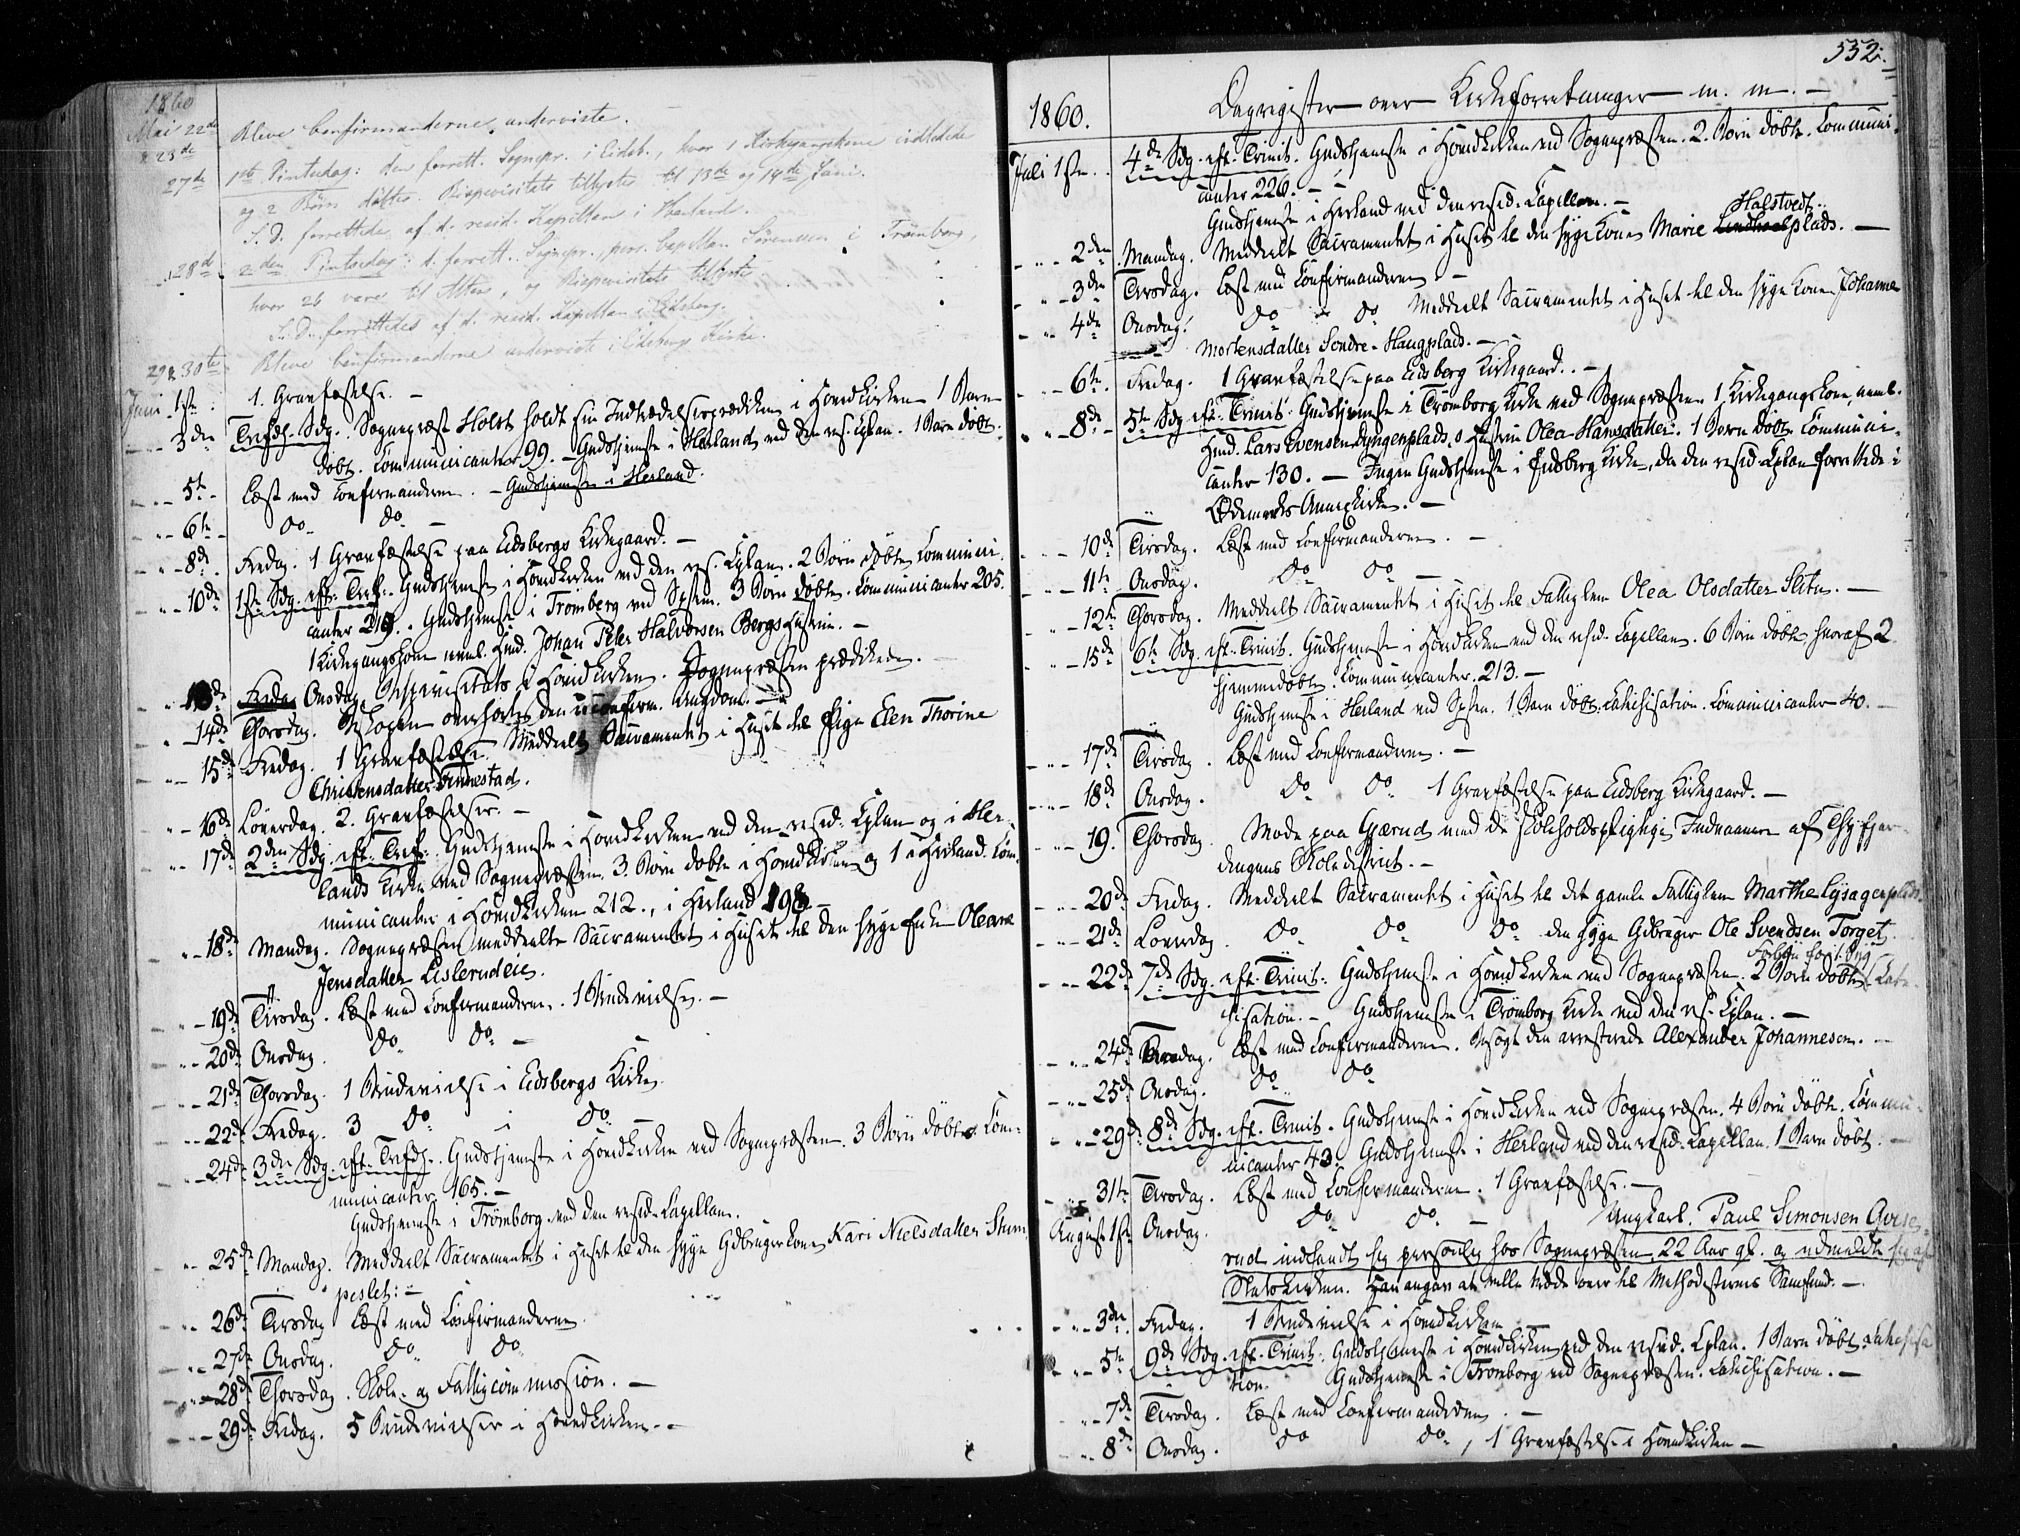 1860
Mai 22de Bleve Confirmanderne underviste.
" 23de
27de 1ste Pintsedag: den forrett. Sognepr. i Eidsb., hvor 1 Kirkegangskone indledede
og 2 Børn døbtes. Bispevisitats tillystes til 13de og 14de Juni.
S. D. forrettedes af d. resid. Kapellan i Hærland.
28de 2den Pintsedag: d. forrett. Sognepr., pers. Capellan Sörensen i Trömborg
hvor 26 vare til Alters, og Bispevisitats tillystes.
S. D. forrettedes af d. resid. Kapellan i Eidsberg.
29 & 30te Bleve Confirmanderne underviste i Eidsbergs Kirke.
Juni 1ste 1. Gravfæstelse. –
3die Trefdh. Sdg. Sognepræst Holst holdt sin Indtrædelsesprædiken i Hovedkirken 1 Barn
døbt. Communicanter 99. – Gudstjeneste i Herland ved den res. Cplan. 1 Barn døbt.
5te Læst med Confirmanderne. – Gudstjeneste i Herland.
6te do do –
8de Fredag. 1 Gravfæstelse paa Eidsbergs Kirkegaard. –
10de 1ste Sdg. eft. Tref. Gudstjeneste i Hovedkirken ved den res. Cplan. 2 Børn døbte. Communi-
canter 219. Gudstjeneste i Tromberg ved Spsten. 3 Børn döbte. Communicanter 205.
1 Kirkegangskone neml. Hmd. Johan Peter Halvorsen Bergs Hustru. –
13de Fredag Onsdag. Bispevisitats i Hovedkirken. Sognepræsten prædikede. –
14de Thorsdag. Biskopen overhørte den confirm. Ungdom. –
15de Fredag. 1 Gravfæstelse. Meddeelt Sacramentet i Huset til Pige Elen Thorine
Christensdatter Finnestad.
16de Löverdag. 2. Gravfæstelser. –
17de 2den Sdg. eft. Tref. Gudstjeneste i Hovedkirken ved den resid. Cplan og i Her-
lands Kirke ved Sognepræsten. 3. Børn døbte i Hovedkirken og 1 i Herland. Com-
municanter i Hovedkirken 212., i Herland 198 –
18de Mandag. Sognepræsten meddeelte Sacramentet i Huset til den syge Enke Oleane
Jensdatter Lislerudeie.
19de Tirsdag. Læst med Confirmanderne. 1 Brudevielse. –
20de Onsdag. do do –
21de Thorsdag. 1 Brudevielse i Eidsbergs Kirke.
22de Fredag. 3 do i do –
24de 3die Sdg. eft. Trefdh. Gudstjeneste i Hovedkirken ved Sognepræsten. 3 Børn døbte. Com-
municanter 165. –
Gudstjeneste i Trömborg ved den resid. Capellan.
25de Mandag. Meddeelt Sacramentet i Huset til den syge Gdbrugerkone Kari Nielsdatter Stum-
peslet: –
26de Tirsdag Læst med Confirmanderne.
27de Onsdag. do do
28de Thorsdag. Skole- og Fattigcommission. –
29de Fredag. 5 Brudevielser i Hovedkirken. –
552.
1860. Dagregister over Kirkeforretninger m. m. –
Juli 1ste. 4de Sdg. eft. Trinit. Gudstjeneste i Hovedkirken ved Sognepræsten. 2. Børn døbte. Communi-
canter 226. –
Gudstjeneste i Herland ved den resid. Capellan. –
Halstvedt
2den Mandag. Meddeelt Sacramentet i Huset til den syge Kone Marie plads. –
3die Tirsdag. Læst med Confirmanderne –
4de Onsdag. do do Meddeelt Sacramentet i Huset til den syge Kone Johanne
Mortensdatter Sondre-Haugplads. –
6te Fredag. 1 Gravfæstelse paa Eidsberg Kirkegaard. –
8de 5te Sdg. eft. Trinit. Gudstjeneste i Tromborg Kirke ved Sognepræsten. 1 Kirkegangskone, neml.
Hmd. Lars Evensen Dyngenplads. s Hustru Olea Hansdatter. 1 Barn döbt. Communi-
canter 130. – Ingen Gudstjeneste i Eidsberg Kirke, da den resid. Cplan forrettede i
Ödemarks Annexkirke. –
10de Tirsdag. Læst med Confirmanderne. –
11te Onsdag. do do –
12te Thorsdag. Meddeelt Sacramentet i Huset til Fattiglem Olea Olsdatter Slitu. –
15de 6te Sdg. eft. Trinit. Gudstjeneste i Hovedkirken ved den resid. Capellan. 6 Børn døbte, hvoraf 2
hjemmedøbte. Communicanter. 213. –
Gudstjeneste i Herland ved Spsten. 1 Barn döbt. Catechisation. Communicanter 40. –
17de Tirsdag. Læst med Confirmanderne. –
18de Onsdag. do do 1 Gravfæstelse paa Eidsberg Kirkegaard. –
19. Thorsdag. Møde paa Gjærud med de skoleholdspligtige Indvaanere af Thyfjer-
dingens Skoledistrict. –
20de Fredag. Meddeelt Sacramentet i Huset til det gamle Fattiglem Marthe plads.
21de Löverdag do do do den syge Gdbruger Ole Svendsen Torget.
22de 7de Sdg. eft. Trinit. Gudstjeneste i Hovedkirken ved Sognepræsten. 2 Børn døbte. Cate-
chisation. – Gudstjeneste i Trömborg Kirke ved den res. Cplan. –
24de Tirsdag. Læst med Confirmanderne. Besøgt den arresterede Alexander Johannesen. –
25de Onsdag. do do
29de 8de Sdg. eft. Trinit. Gudstjeneste i Hovedkirken ved Sognepræsten. 4 Børn døbte. Commu-
nicanter 43. Gudstjeneste i Herland ved den resid. Capellan. 1 Barn döbt. –
31te Tirsdag. Læst med Confirmanderne. 1 Gravfæstelse. –
August 1ste Onsdag. do do – Ungkarl. Paul Simonsen Gjæse-
rud indfandt sig personlig hos Sognepræsten, 22 Aar gl. og udmeldte sig af
Statskirken. Han angav at ville træde over til Methodisternes Samfund. –
3die Fredag. 1 Brudevielse i Hovedkirken
5te 9de Sdg. eft. Trinit. Gudstjeneste i Hovedkirken ved den resid. Cplan. 1 Barn døbt. Catechisa-
tion. Gudstjeneste i Tromborg ved Sognepræsten. Catechisation. –
7de Tirsdag. Læst med Confirmanderne. –
8de Onsdag. do do, 1 Gravfæstelse i Hovedkirken –